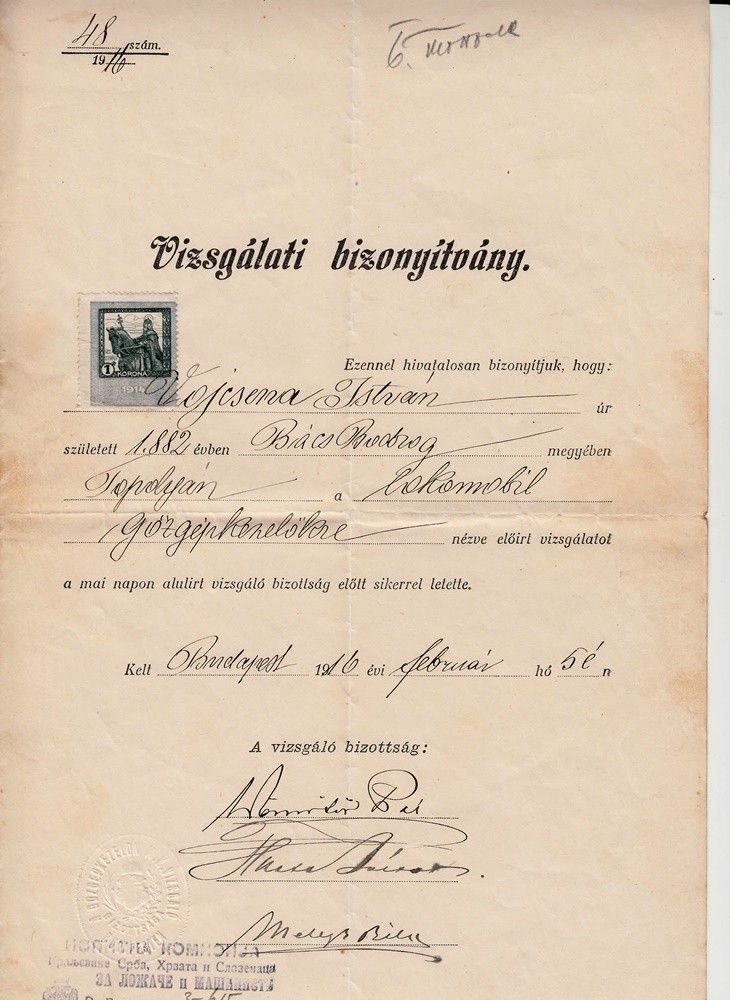 48 szám.
1916
Vizsgálati bizonyítvány.
1 KORONA
1914
Ezennel hivatalosan bizonyítjuk, hogy:
Vojcsena István úr
született 1882 évben Bács Bodrog megyében
Topolyán a lokomobil
gőzgépkezelőkre nézve előirt vizsgálatot
a mai napon alulirt vizsgáló bizottság előtt sikerrel letette.
Kelt Budapest 1916 évi február hó 5 én
A vizsgáló bizottság:
Pál
Melegh Béla
ИСПИТНА КОМИСИЈА
Краљевине Срба, Хрвата и Словенаца
ЗА ЛОЖАЧЕ и МАШИНИСТЕ